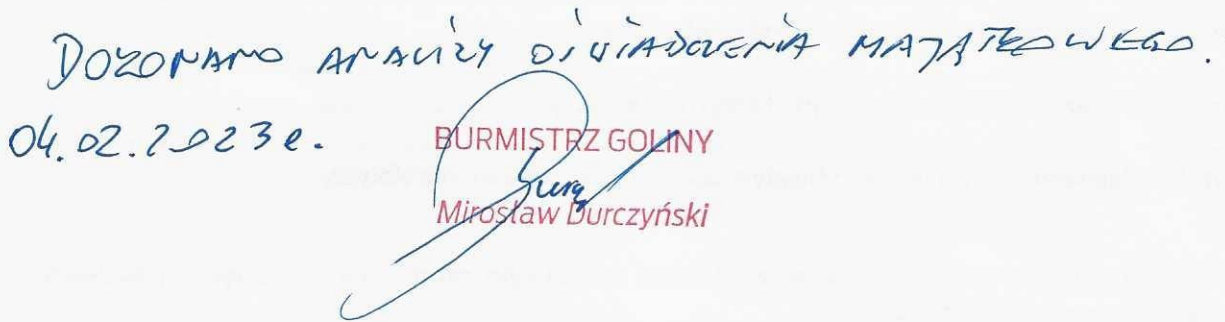 DOKONANO ANALIZY OŚWIADCZENIA MAJĄTKOWEGO.
04.02.2023 r.
BURMISTRZ GOLINY
Mirosław Durczyński